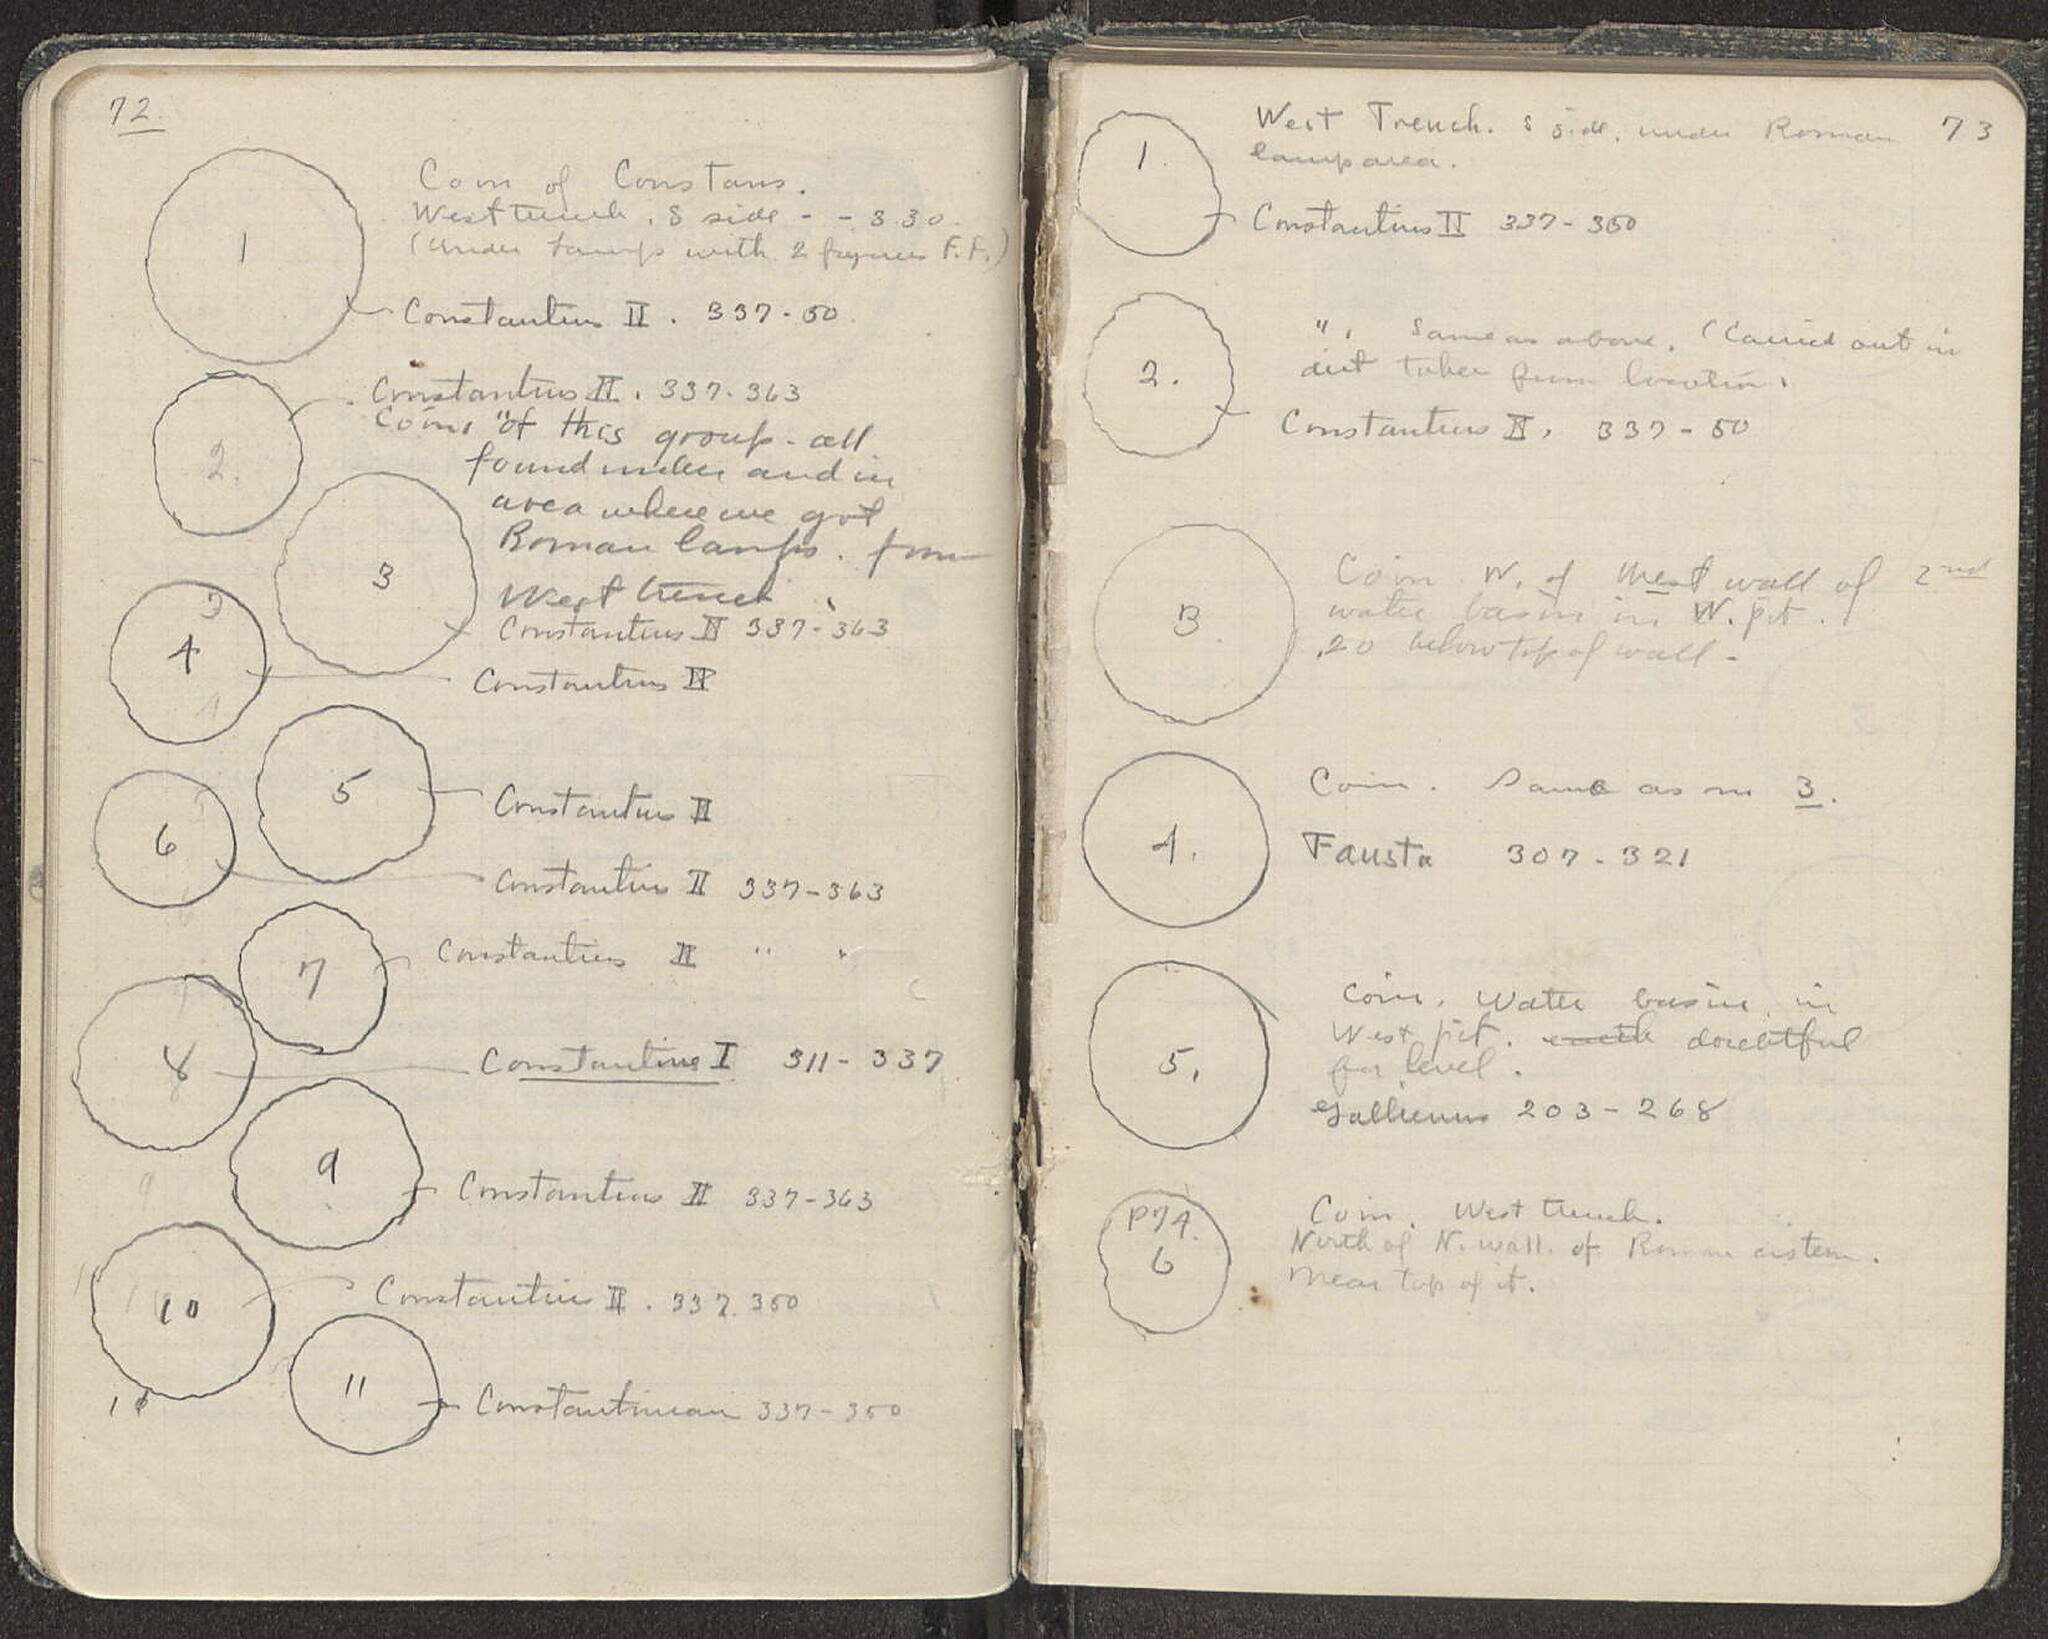 72.
1
Coin of Constans.
West trench. S side - - 3.30.
(Under lamp with 2 figures F.F.)
Constantius II. 337-50.
2.
Constantius II. 337-363
Coins "of this group - all
found under and in
area where we got
Roman lamps. from
West trench.
3
Constantius II 337-363
4
Constantius II
5
Constantius II
6
Constantius II 337-363
7
Constantius II " "
8
Constantine I 311-337
9
Constantius II 337-363
10
Constantius II. 337.350
11
Constantinian 337-350
73
1.
West Trench. S side. under Roman
lamp area.
Constantius II 337-350
2.
". Same as above. (Carried out in
dirt taken from location.
Constantius II. 337-50
3.
Coin W. of West wall of 2nd
water basin in W. pit.
.20 below top of wall -
4.
Coin. Same as no 3.
Fausta 307-321
5.
Coin. Water basin in
West pit. earth doubtful
for level.
Gallienus 203-268
P74.
6
Coin. West trench.
North of N. wall of Roman cistern.
near top of it.